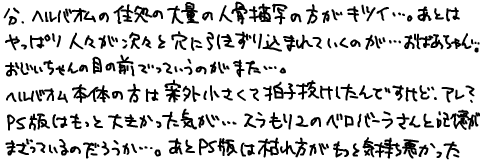 分、ヘルバオムの住処の大量の人骨描写の方がキツイ…。あとは
やっぱり人々が次々と穴に引きずり込まれていくのが…おばあちゃん。
おじいちゃんの目の前でっていうのがまた…。
ヘルバオム本体の方は案外小さくて拍子抜けしたんですけど、アレ？
PS版はもっと大きかった気が…スラもり2のベロバーラさんと記憶が
まざっているのだろうか…。あとPS版は枯れ方がもっと気持ち悪かった